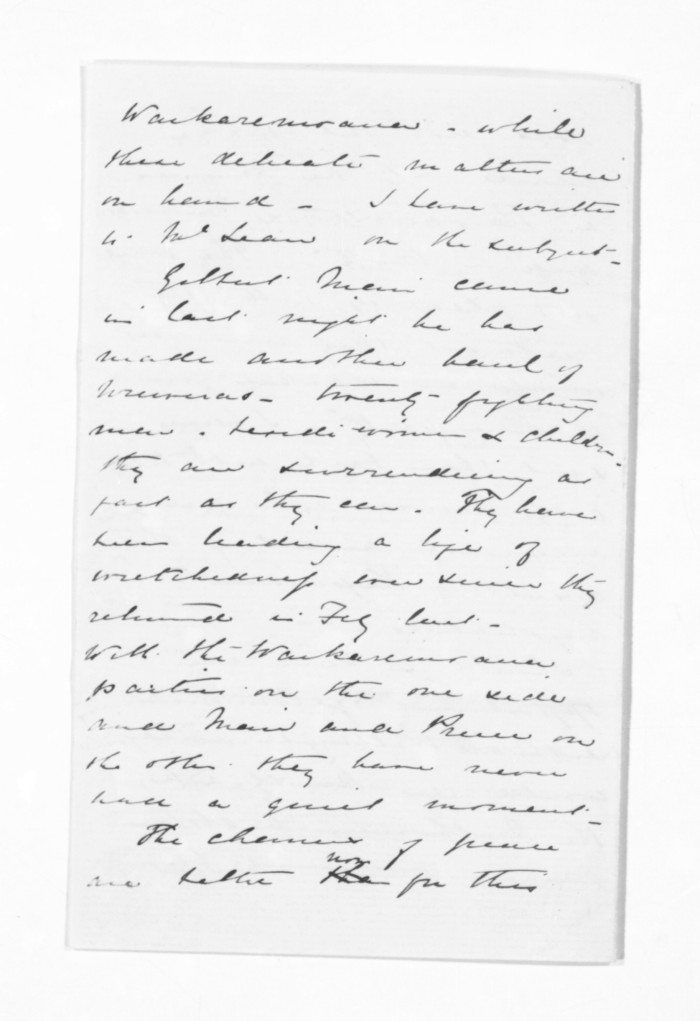 Waikaremoana - while
these delicate matters are
on hand - I have written
to Mr McLean on the subject -
Gilbert Mair came
in last night he has
made another haul of
Ureweras - twenty fighting
men - besides women & children -
they are surrendering as
fast as they can - They have
been leading a life of
wretchedness ever since they
returned in Feby last -
With the Waikaremoana
parties on the one side
and Mair and Preece on
the other they have never
had a quiet moment -
The chances of peace
are better now for this